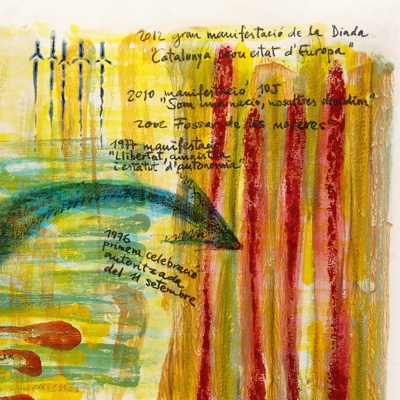 2012 gran manifestació de la Diada
"Catalunya, nou estat d'Europa"
2010 manifestació 10J
"Som una nació, nosaltres decidim"
2002 Fossar de les moreres
1977 manifestació
"Llibertat, amnistia
i estatut d'autonomia"
1976
primera celebració
autoritzada
del 11 setembre